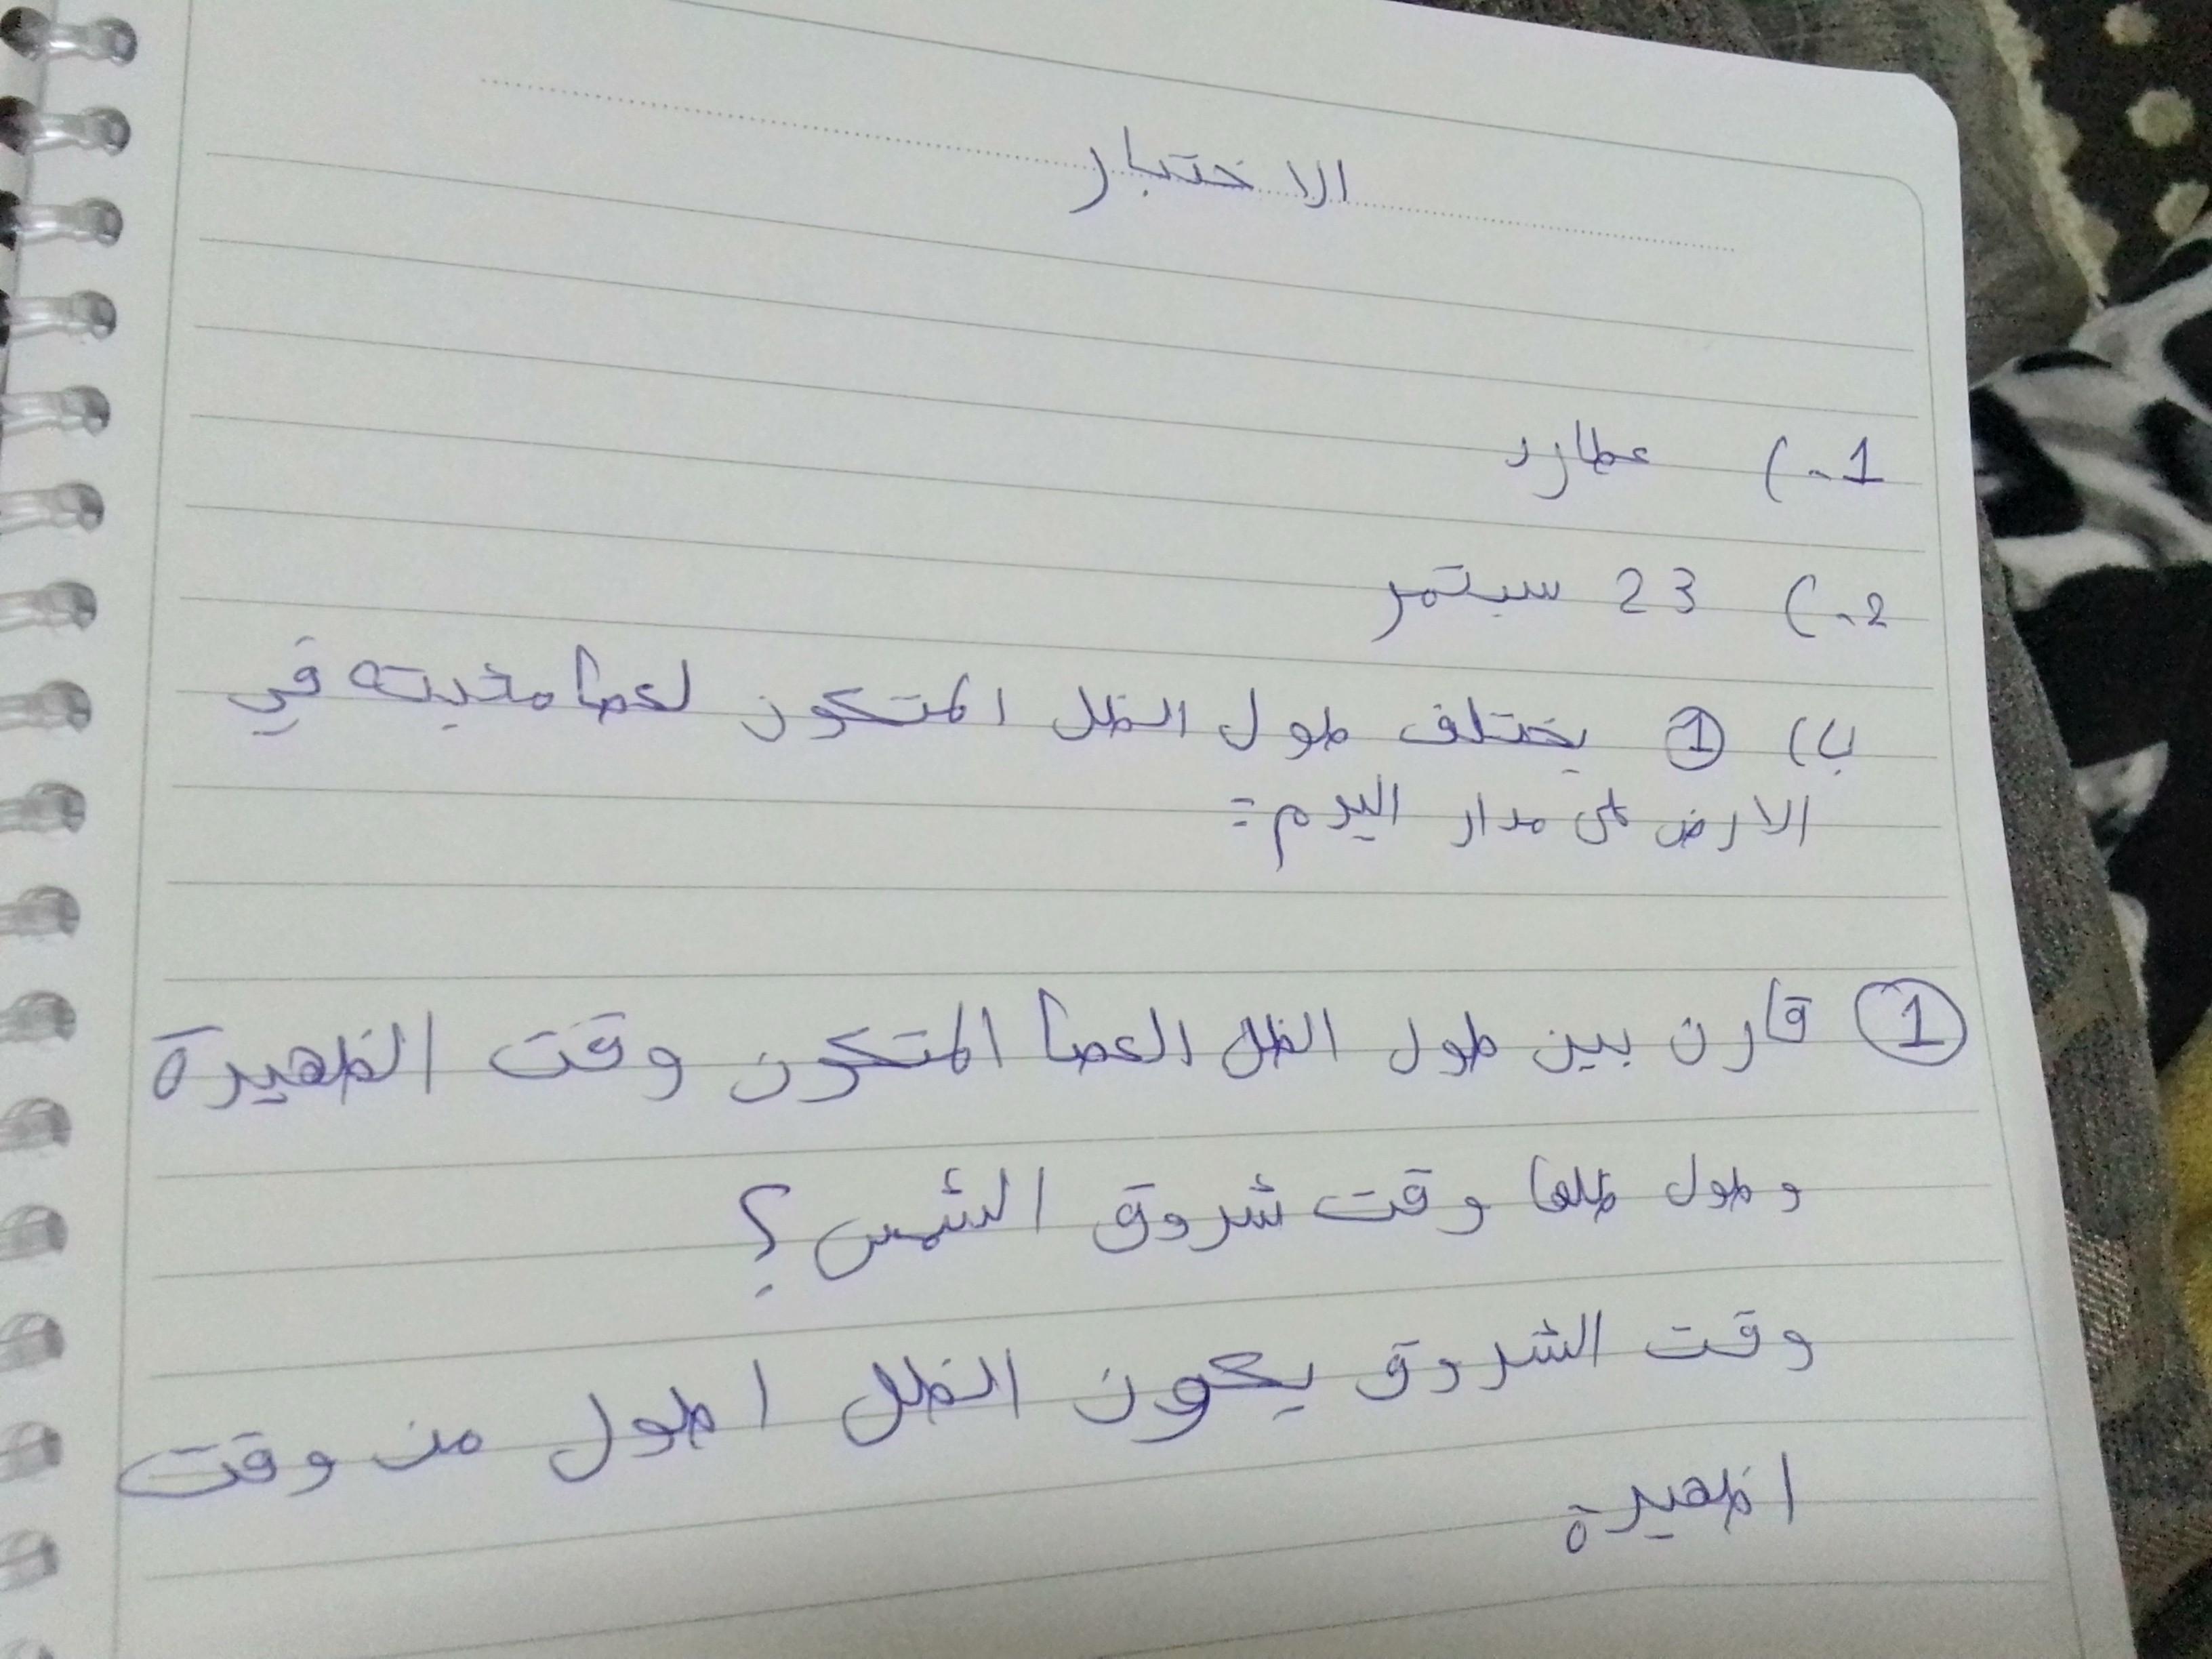 الاختبار
1-) عطارد
2-) 23 سبتمر
ب) ① يختلف طول الظل المتكون لعصا مثبته في
الارض على مدار اليوم :
① قارن بين طول الظل العصا المتكون وقت الظهيرة
وطول ظلها وقت شروق الشمس ؟
وقت الشروق يكون الظل اطول من وقت
اظهيرة